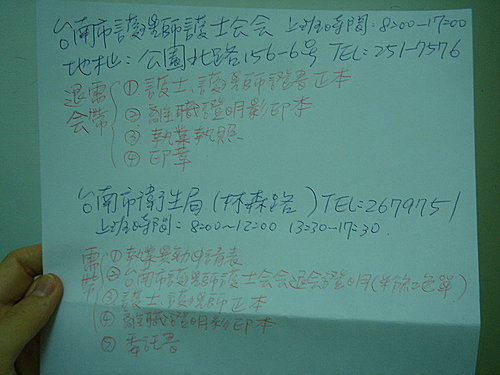 台南市護理師護士公會 上班時間:8:00~17:00
地址:公園北路156-6号 TEL:251-7576
退會需帶
① 護士、護理師證書正本
② 離職證明影印本
③ 執業執照
④ 印章
台南市衛生局(林森路)TEL:2679751
上班時間:8:00~12:00 13:30-17:30
需帶
① 執業異動申請表
② 台南市護理師護士公會退會證明(
③ 護士、護理師正本
④ 離職證明影印本
⑤ 委託書